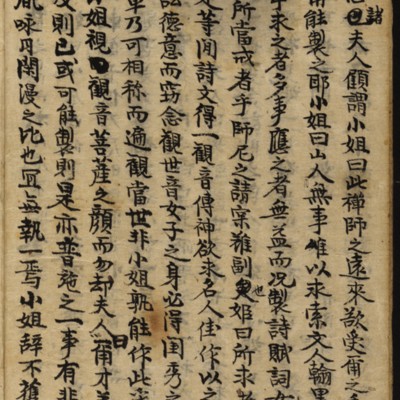 諸
曰夫人顧謂小姐曰此禪師之遠來欲受爾之
求之者多事應之者無益而況製詩賦詞女
能製之耶小姐曰山人無事惟以求索文人翰墨
所當戒者乎師尼之請案難副也姬曰所求
等閒詩文得一觀音傳神欲求名人佳作以之
德意而窃念觀世音女子之身必得閨秀之
乃可相称而遍觀當世非小姐孰能作此
小姐視觀音菩薩之顔而勿却夫人曰爾才
則已或可能製則是亦普施之一事有非
咏月閑漫之比也宜無執一焉小姐辞不獲